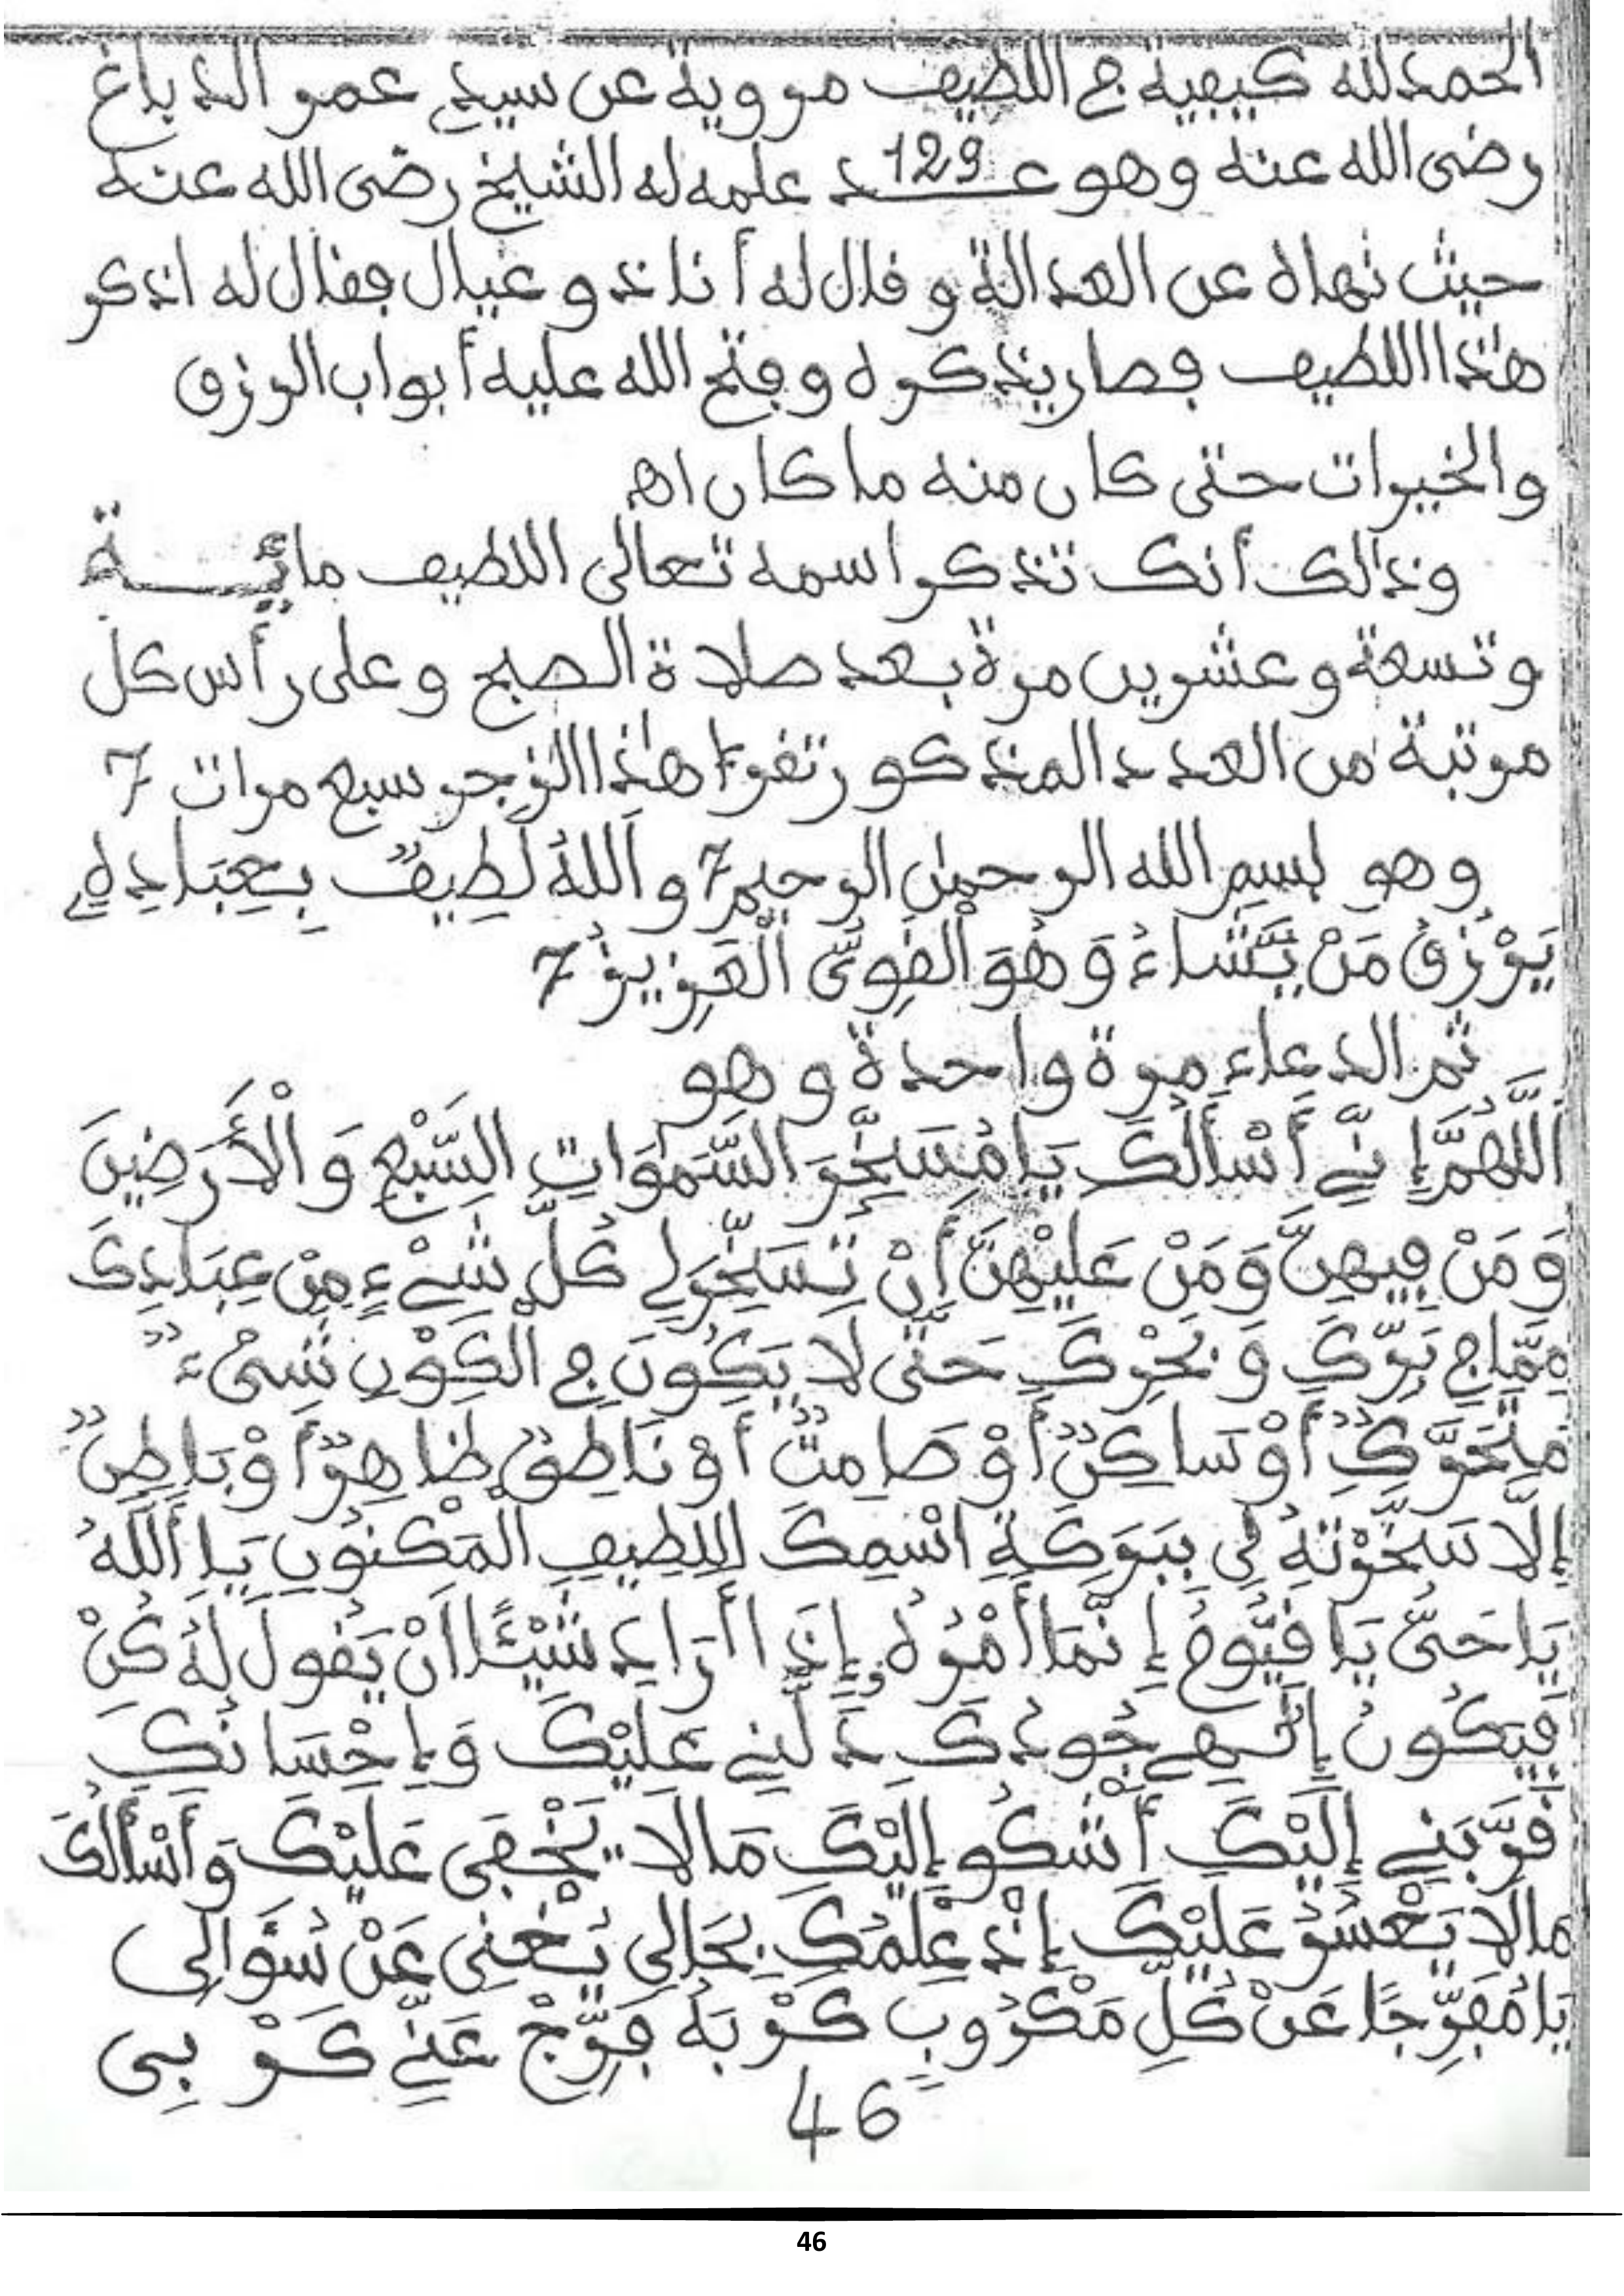 الحمد لله كيفية في اللطيف مروية عن سيدي عمر الدباغ
رضى الله عنه وهو عــ129ــد علمه له الشيخ رضى الله عنه
حيث نهاه عن العدالة وقال له أنا ذو عيال فقال له اذكر
هٰذا اللطيف فصار يذكره وفتح الله عليه أبواب الرزق
والخيرات حتى كان منه ما كان اهـ
وذٰلك أنك تذكر اسمه تعالى اللطيف مائـــة
وتسعة وعشرين مرة بعد صلاة الصبح وعلى رأس كل
مرتبة من العدد المذكور تقرء هٰذا الزجر سبع مرات 7
وهو بسم الله الرحمٰن الرحيم 7 و اَللهُ لَطِيفٌ بِعِبَادِهِ
يَرْزُقُ مَنْ يَّشَاءُ وَهُوَ الْقَوِىُّ الْعَزِيزُ 7
ثم الدعاء مرة واحدة وهو
اَللَّهُمَّ إِنِّي أَسْأَلُكَ يَا مُسَخِّرَ السَّمٰوَاتِ السَّبْعِ وَالْأَرَضِينَ
وَمَنْ فِيهِنَّ وَمَنْ عَلَيْهِنَّ أَنْ تُسَخِّرَ لِي كُلَّ شَيْءٍ مِنْ عِبَادِكَ
مِمَّا فِي بَرِّكَ وَبَحْرِكَ حَتَّى لَا يَكُونَ فِي الْكَوْنِ شَىْءٌ
مُتَحَرِّكٌ أَوْ سَاكِنٌ أَوْ صَامِتٌ أَوْ نَاطِقٌ ظَاهِرٌ أَوْ بَاطِنٌ
إِلَّا سَخَّرْتَهُ لِي بِبَرَكَةِ اسْمِكَ اللَّطِيفِ الْمَكْنُونِ يَا اَللهُ
يَا حَىُّ يَا قَيُّومُ إِنَّمَا أَمْرُهُ إِذَا أَرَادَ شَيْئًا أَنْ يَقُولَ لَهُ كُنْ
فَيَكُونُ إِلَٰهِي جُودُكَ دَلَّنِي عَلَيْكَ وَإِحْسَانُكَ
قَرَّبَنِي إِلَيْكَ أَشْكُو إِلَيْكَ مَا لَا يَخْفَى عَلَيْكَ وَأَسْأَلُكَ
مَا لَا يَعْسُرُ عَلَيْكَ إِذْ عِلْمُكَ بِحَالِي يُغْنِي عَنْ سُؤَالِي
يَا مُفَرِّجًا عَنْ كُلِّ مَكْرُوبٍ كَرْبَهُ فَرِّجْ عَنِّي كَرْبِي
46
46